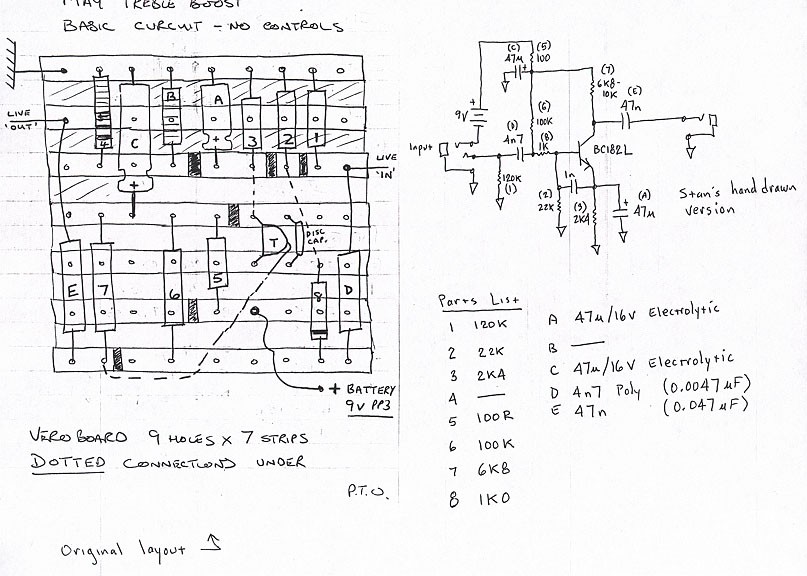 MAY TREBLE BOOST
BASIC CURCUIT - NO CONTROLS
LIVE
'OUT'
B
A
4
C
+
3
2
1
+
LIVE
'IN'
T
DISC
CAP.
E
7
6
5
8
D
+ BATTERY
9V PP3
VEROBOARD 9 HOLES X 7 STRIPS
DOTTED CONNECTIONS UNDER
P.T.O.
Original layout
(C)
47µ
+
(5)
100
(7)
6K8-
10K
(E)
47n
9V
+
(6)
100K
(D)
4n7
(8)
1K
Input
BC182L
120K
(1)
1n
(2)
22K
(3)
2K4
+
(A)
47µ
Stan's hand drawn
version
Parts List
1 120K
2 22K
3 2K4
4 —
5 100R
6 100K
7 6K8
8 1K0
A 47µ/16V Electrolytic
B —
C 47µ/16V Electrolytic
D 4n7 Poly (0.0047µF)
E 47n (0.047µF)